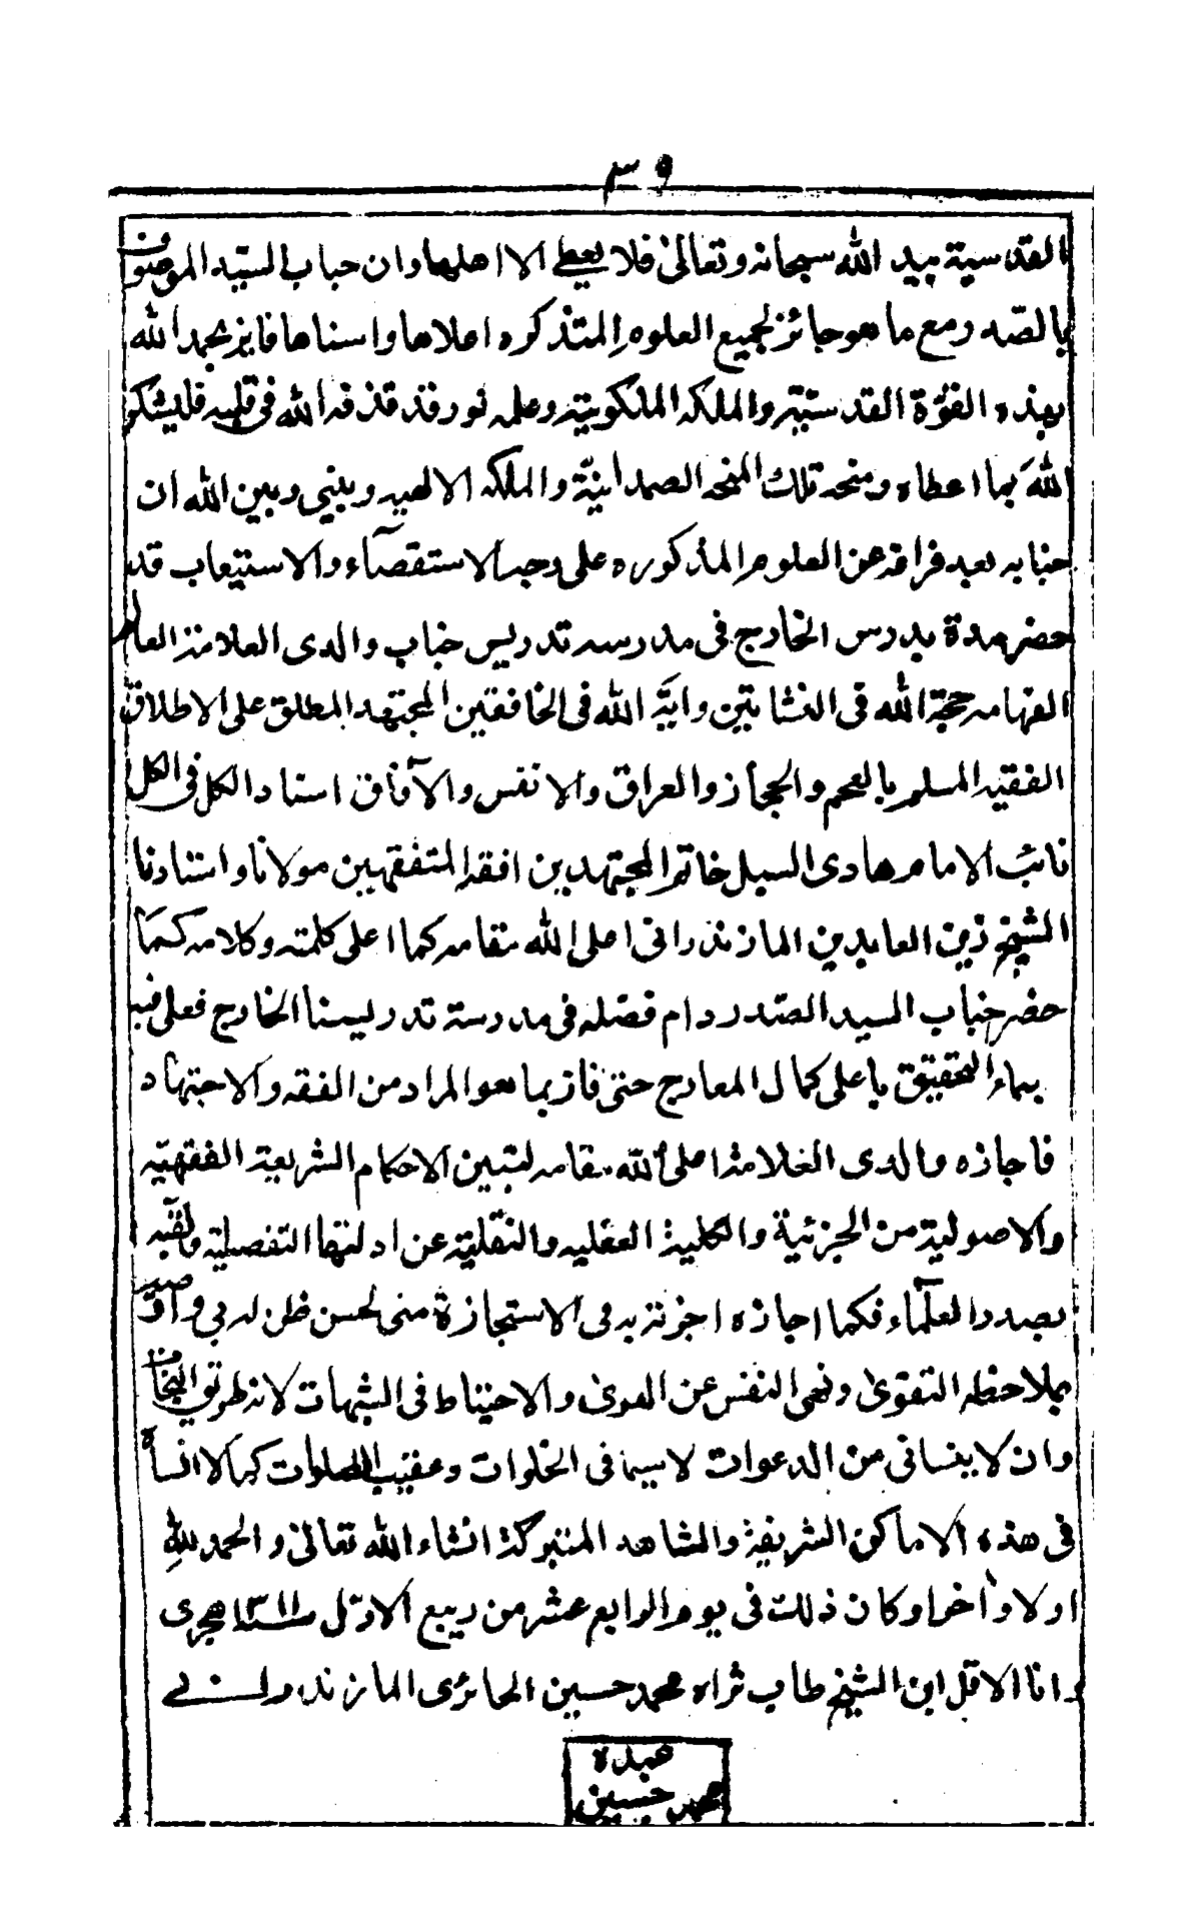 ٣٩
القدسية بيد الله سبحانه وتعالى فلا يعطى الا اهلها وان جناب السيد الموصوف
بالصدر مع ما هو حائز لجميع العلوم المتذكره اعلاها واسناها فايز بحمد الله
بهذه القوة القدسية والملكه الملكوتية وعلمه نور قد قذفه الله فى قلبه فليشكر
الله بما اعطاه ومنحه تلك المنحه الصمدانية والملكه الالهيه وبينى وبين الله ان
جنابه بعد فراغه عن العلوم المذكوره على وجه الاستقصآء والاستيعاب قد
حضر مدة بدرس الخارج فى مدرسه تدريس جناب والدى العلامة العالم
الفهامه حجة الله فى النشاتين واية الله فى الخافقين المجتهد المطلق على الاطلاق
الفقيه المسلم بالعجم والحجاز والعراق والانفس والآفاق استاد الكل فى الكل
نائب الامام هادى السبل خاتم المجتهدين افقه المتفقهين مولانا واستادنا
الشيخ زين العابدين المازندرانى اعلى الله مقامه كما اعلى كلمته وكلامه كما
حضر جناب السيد الصدر دام فضله فى مدرسة تدريسنا الخارج فعلى فيه
بماء التحقيق باعلى كمال المعارج حتى فاز بما هو المراد من الفقه والاجتهاد
فاجازه والدى العلامة اعلى الله مقامه لتبين الاحكام الشريعة الفقهيه
والاصولية من الجزئية والكلية العقليه والنقلية عن ادلتها التفصيلية ولقبه
بصدر العلمآء فكما اجازه اجزته به فى الاستجازة منى لحسن ظن له بي و
بملاحظه التقوى ونهى النفس عن الهوى والاحتياط فى الشبهات لانه طريق النجاة
وان لا ينسانى من الدعوات لا سيما فى الخلوات وعقيب الصلوات كما لا انساه
فى هذه الاماكن الشريفة والمشاهد المتبركة انشاء الله تعالى والحمد لله
اولا وآخرا وكان ذلك فى يوم الرابع عشر من ربيع الاول سنه ١٣١١ هجرى
وانا الاقل ابن الشيخ طاب ثراه محمد حسين الحائرى المازندرانى
عبده
محمد حسين